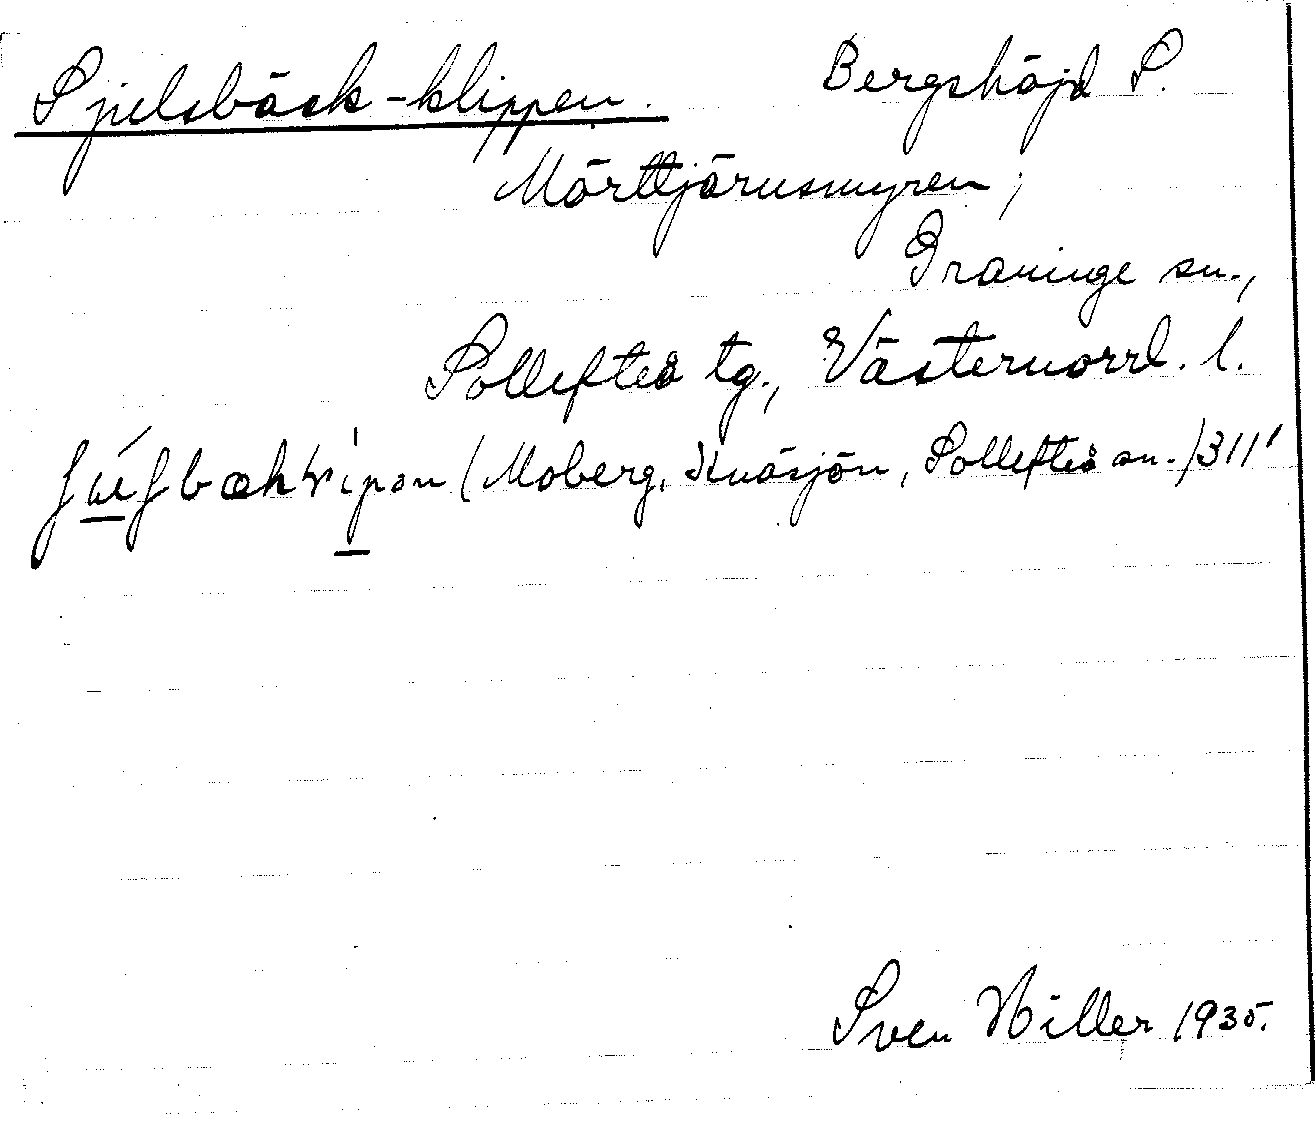 Sjulsbäck-klippen. Bergshöjd S.
Mörttjärnsmyren,
Graninge sn.,
Sollefteå tg., Västernorrl. l.
(Moberg, Knäsjön, Sollefteå sn.) 311'
Sven Hiller 1935.